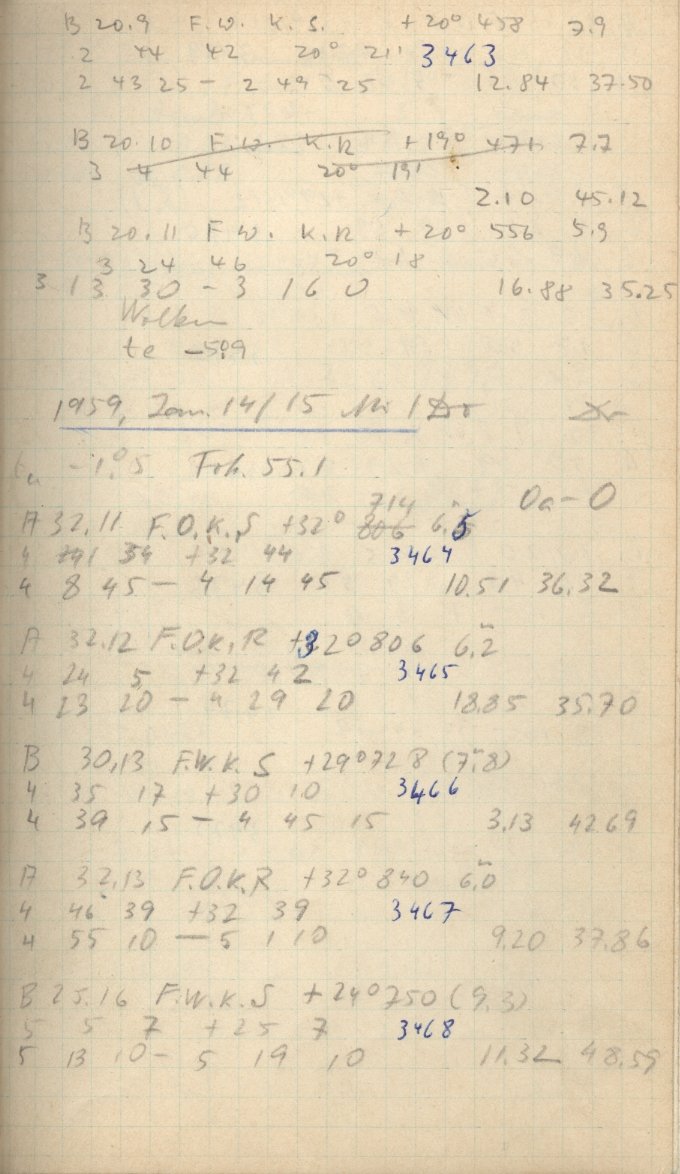 B 20.9 F.W. K. S. +20° 458 7.9
2 44 42 20° 21' 3463
2 43 25 - 2 49 25 12.84 37.50
B 20.10 F.W. K.R +19° 471 7.7
3 4 44 20° 19'
2.10 45.12
B 20.11 F W. K.R + 20° 556 5.9
3 24 46 20° 18
3 13 30 - 3 16 0 16.88 35.25
Wolken
te -5.°9
1959, Jan. 14/15 Mi /
-1.°5 55.1
714 Oa-O
A 32.11 F.O.K.S +32° 806 6.5
4 34 +32 44 3464
4 8 45 - 4 14 45 10.51 36.32
A 32.12 F.O.K,R +32°806 6.2
4 24 5 +32 42 3465
4 23 20 - 4 29 20 18.85 35.70
B 30,13 F.W.K.S +29°728 (7.8)
4 35 17 +30 10 3466
4 39 15 - 4 45 15 3.13 42.69
A 32,13 F.O.K.R +32°840 6.0
4 46 39 +32 39 3467
4 55 10 - 5 1 10 9.20 37.86
B 25.16 F.W.K.S +24°750 (9.3)
5 5 7 +25 7 3468
5 13 10 - 5 19 10 11.32 48.59